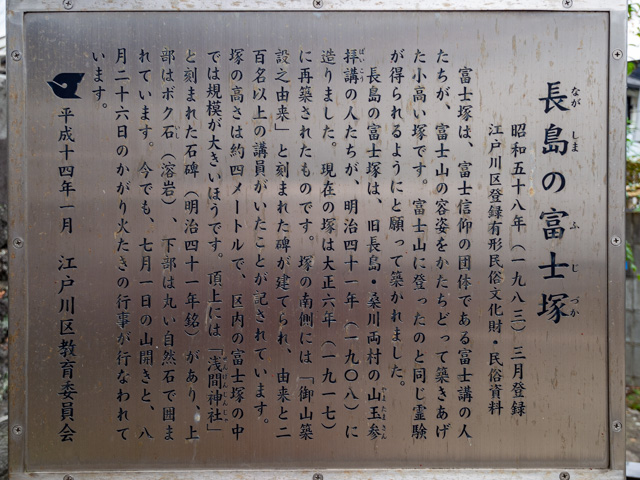 長島の富士塚
ながしま ふじづか
昭和五十八年(一九八三)三月登録
江戸川区登録有形民俗文化財・民俗資料
富士塚は、富士信仰の団体である富士講の人
たちが、富士山の容姿をかたちどって築きあげ
た小高い塚です。富士山に登ったのと同じ霊験
が得られるようにと願って築かれました。
長島の富士塚は、旧長島・桑川両村の山玉参
拝講の人たちが、明治四十一年(一九〇八)に
造りました。現在の塚は大正六年(一九一七)
に再築されたものです。塚の南側には「御山築
設之由来」と刻まれた碑が建てられ、由来と二
百名以上の講員がいたことが記されています。
塚の高さは約四メートルで、区内の富士塚の中
では規模が大きいほうです。頂上には「浅間神社」
と刻まれた石碑(明治四十一年銘)があり、上
部はボク石(溶岩)、下部は丸い自然石で囲ま
れています。今でも、七月一日の山開きと、八
月二十六日のかがり火たきの行事が行なわれて
います。
平成十四年一月 江戸川区教育委員会